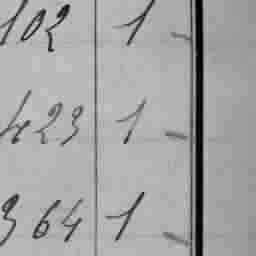 102 1 -
423 1 -
364 1 -